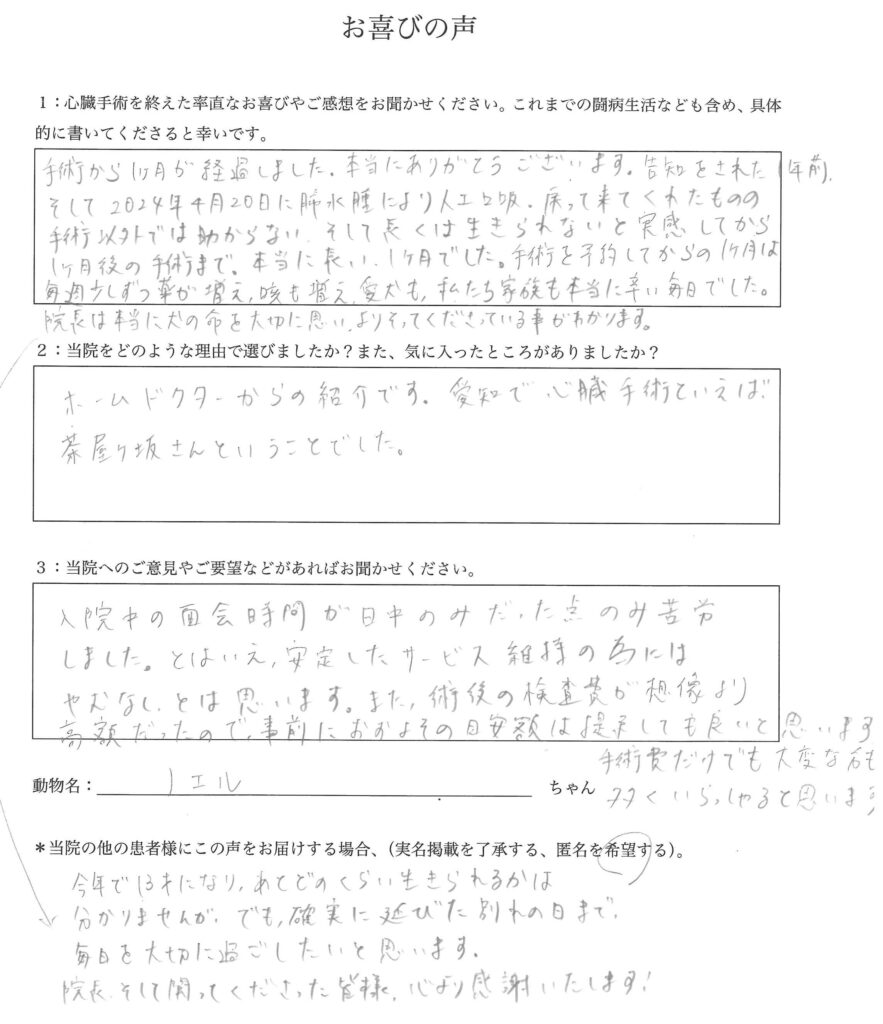 お喜びの声
1：心臓手術を終えた率直なお喜びやご感想をお聞かせください。これまでの闘病生活なども含め、具体
的に書いてくださると幸いです。
手術から1ヶ月が経過しました。本当にありがとうございます。告知をされた1年前、
そして2024年4月20日に肺水腫により人工呼吸、戻って来てくれたものの
手術以外では助からない、そして長くは生きられないと実感してから
1ヶ月後の手術まで、本当に長い、1ヶ月でした。手術を予約してからの1ヶ月は
毎週少しずつ薬が増え、咳も増え、愛犬も、私たち家族も本当に辛い毎日でした。
院長は本当に犬の命を大切に思い、よりそってくださっている事がわかります。
2：当院をどのような理由で選びましたか？また、気に入ったところがありましたか？
ホームドクターからの紹介です。愛知で心臓手術といえば
茶屋ヶ坂さんということでした。
3：当院へのご意見やご要望などがあればお聞かせください。
入院中の面会時間が日中のみだった点のみ苦労
しました。とはいえ、安定したサービス維持の為には
やむなし、とは思います。また、術後の検査費が想像より
高額だったので、事前におおよその目安額は提示しても良いと思います
手術費だけでも大変な方も
多くいらっしゃると思います
動物名：ノエル ちゃん
＊当院の他の患者様にこの声をお届けする場合、（実名掲載を了承する、匿名を希望する）。
今年で13才になり、あとどのくらい生きられるかは
分かりませんが、でも、確実に延びた別れの日まで、
毎日を大切に過ごしたいと思います。
院長、そして関ってくださった皆様、心より感謝いたします！